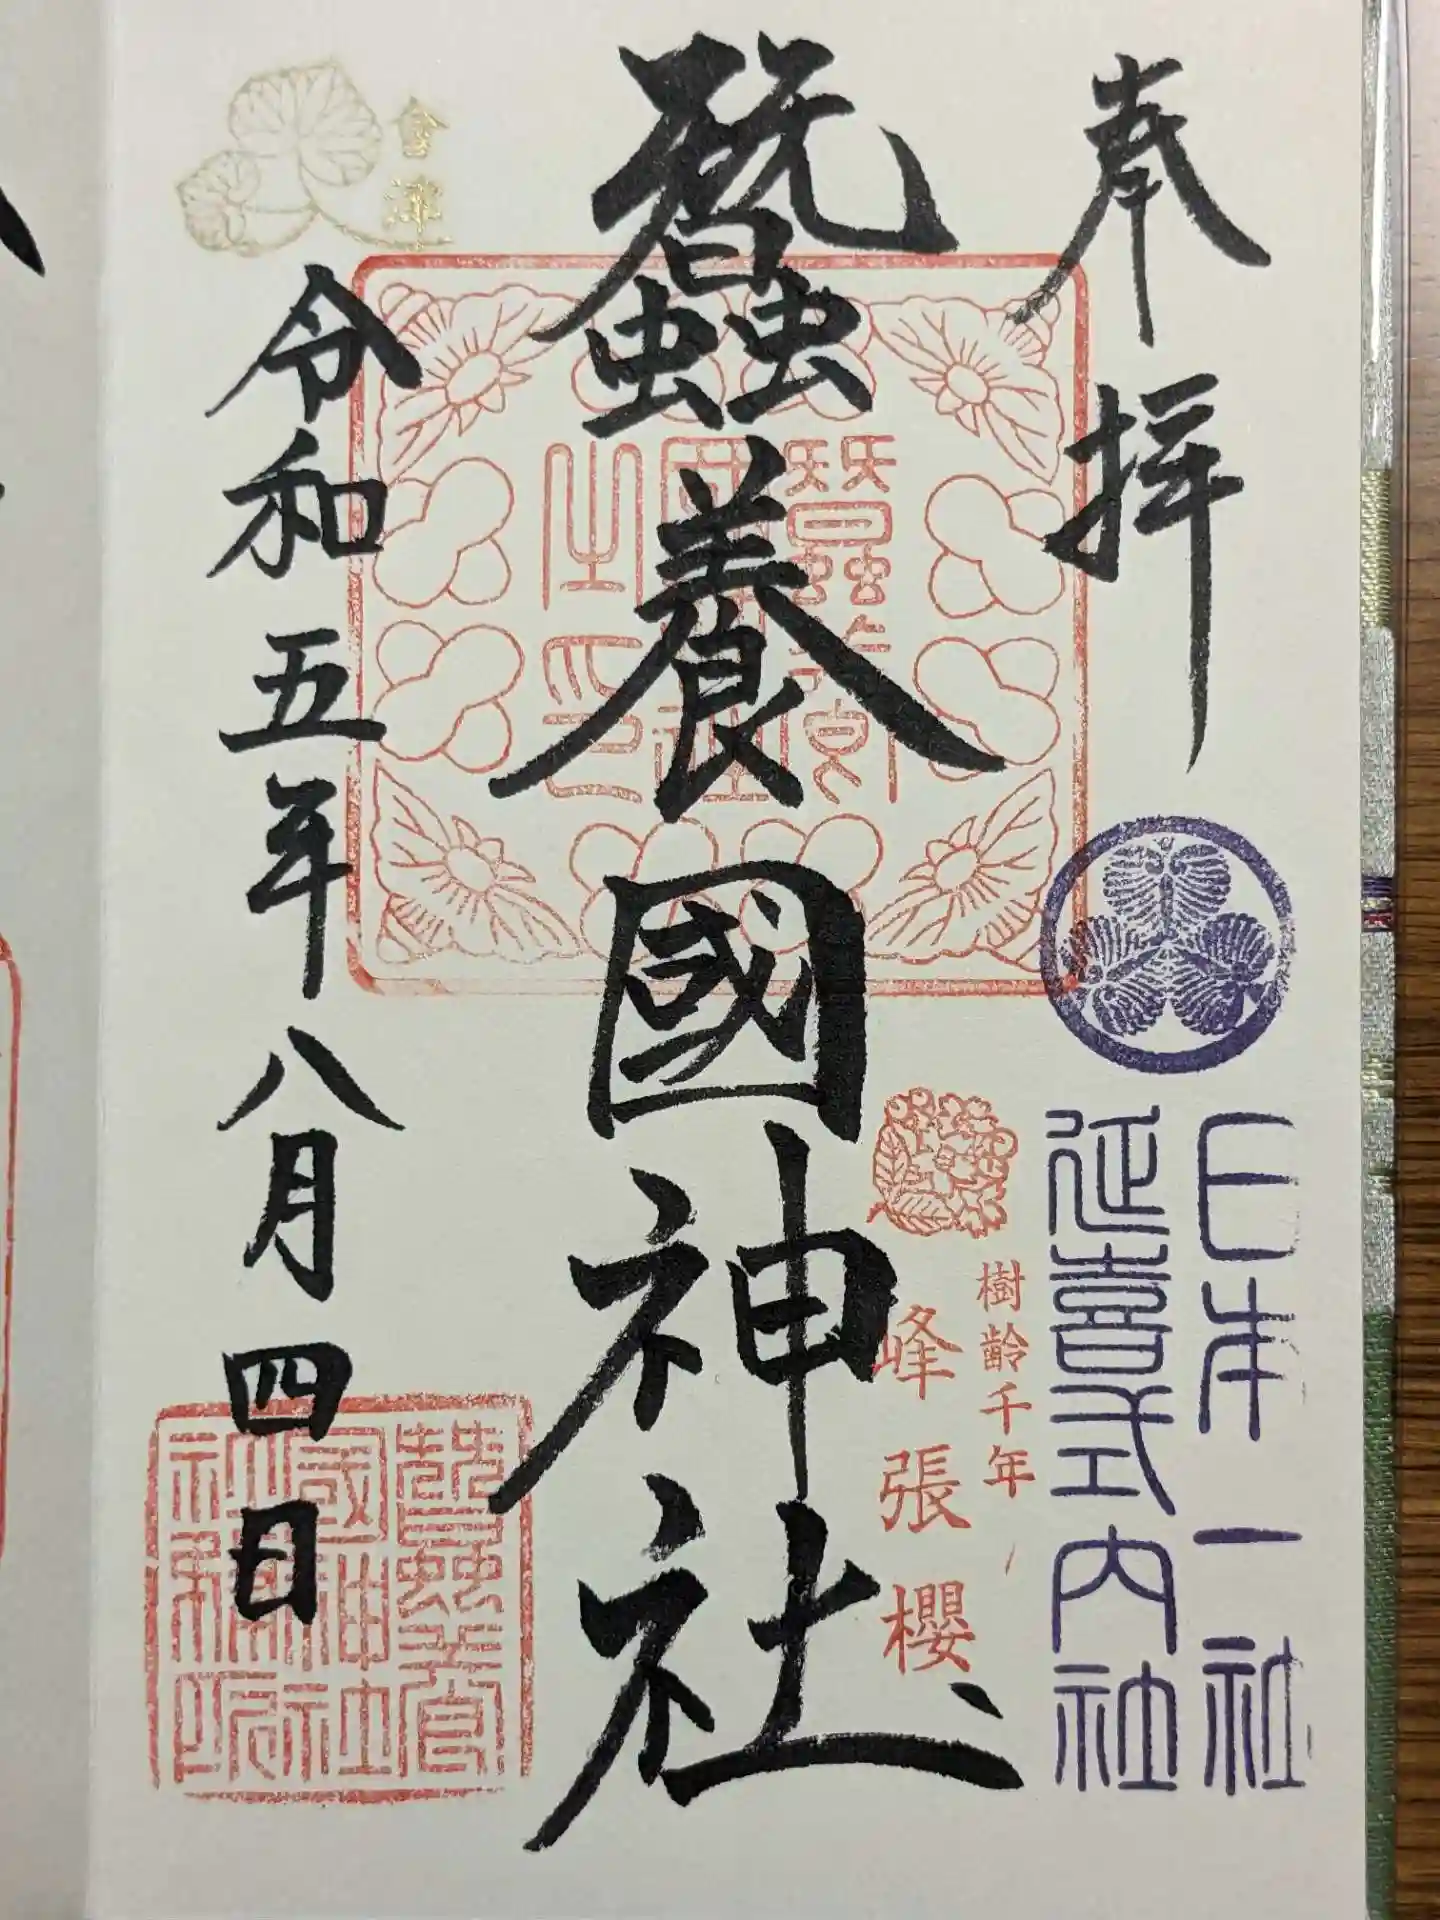 奉拝
日本一社
延喜式内社
樹齢千年
峰張櫻
蠶養國神社
蠶養國神社之印
會津
令和五年八月四日